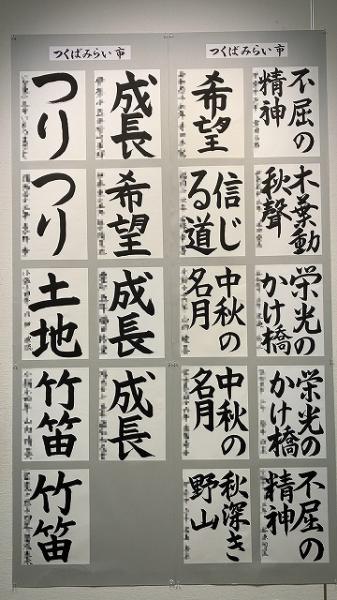 つくばみらい市
不屈の
精神
木葉動
秋聲
栄光の
かけ橋
栄光の
かけ橋
不屈の
精神
希望
信じ
る道
中秋の
名月
中秋の
名月
秋深き
野山
つくばみらい市
成長
希望
成長
成長
つり
つり
土地
竹笛
竹笛